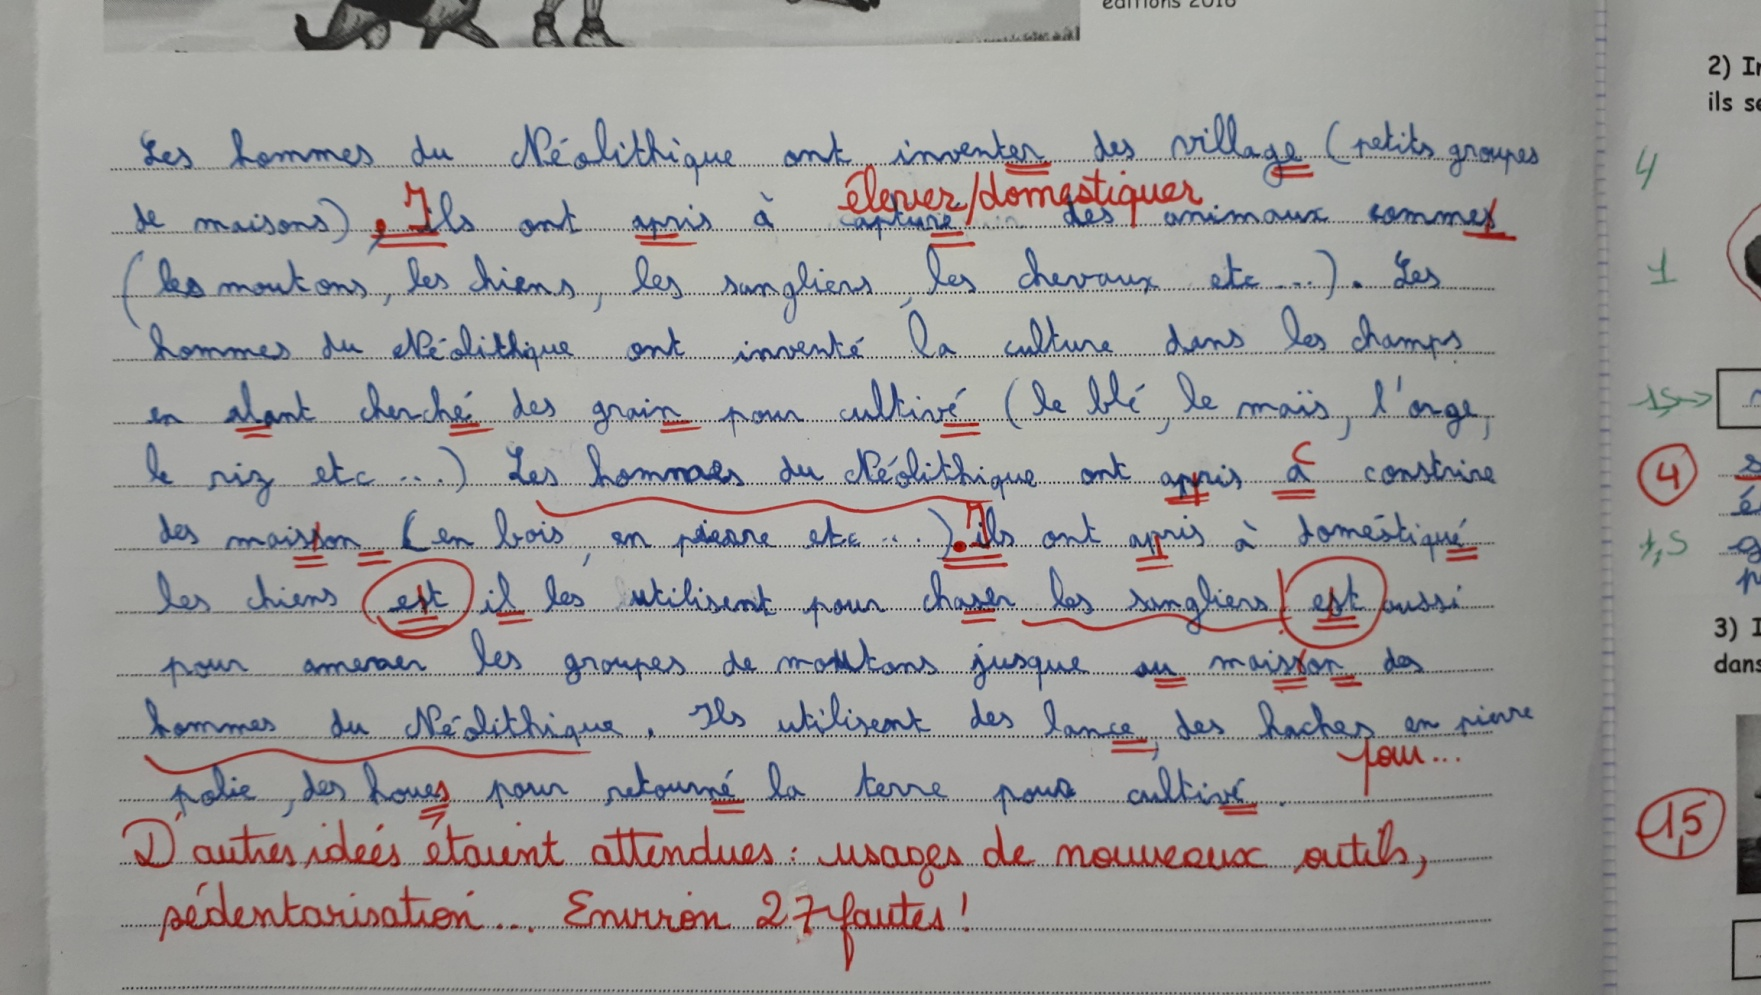 éditions 2018
Les hommes du Néolithique ont inventer des village (petits groupes
élever/domestiquer
de maisons) . Ils ont apris à capture des animaux commes
(les moutons, les chiens, les sangliers, les chevaux etc ...). Les
hommes du Néolithique ont inventé la culture dans les champs
en alant cherché des grain pour cultivé (le blé, le maïs, l'orge,
le riz etc ...) Les hommes du Néolithique ont apris à constrire
des maisson (en bois, en pierre etc ...). Ils ont apris à domestiqué
les chiens est il les utilisent pour chaser les sangliers est aussi
pour amener les groupes de moutons jusque au maisson des
hommes du Néolithique. Ils utilisent des lance, des haches en pierre
pour...
polie, des houes pour retourné la terre pour cultivé.
D'autres ideés étaient attendues : usages de nouveaux outils,
sédentarisation... Environ 27 fautes !
4
1
4
1,5
1,5
2) In
ils se
3) I
dans